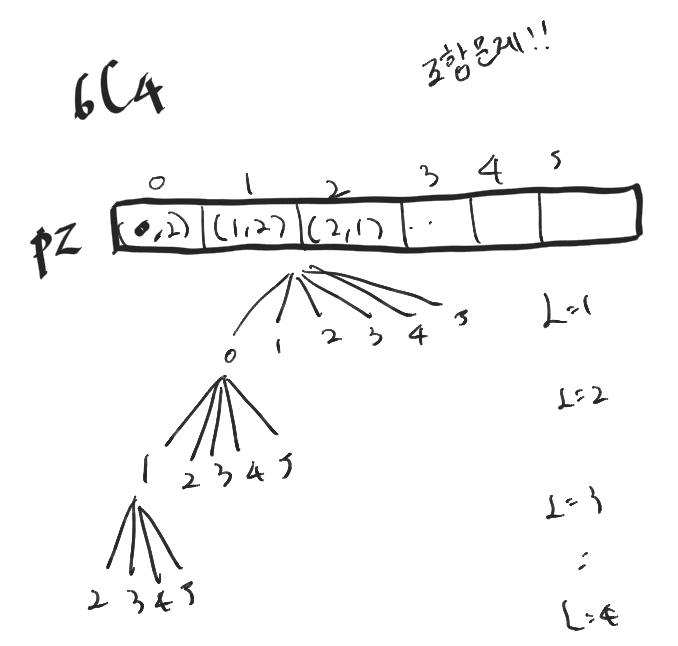 조합문제!!
6C4
0 1 2 3 4 5
pz (0,2) (1,2) (2,1) ..
0 1 2 3 4 5 L=1
1 2 3 4 5 L=2
2 3 4 5 L=3
:
L=4